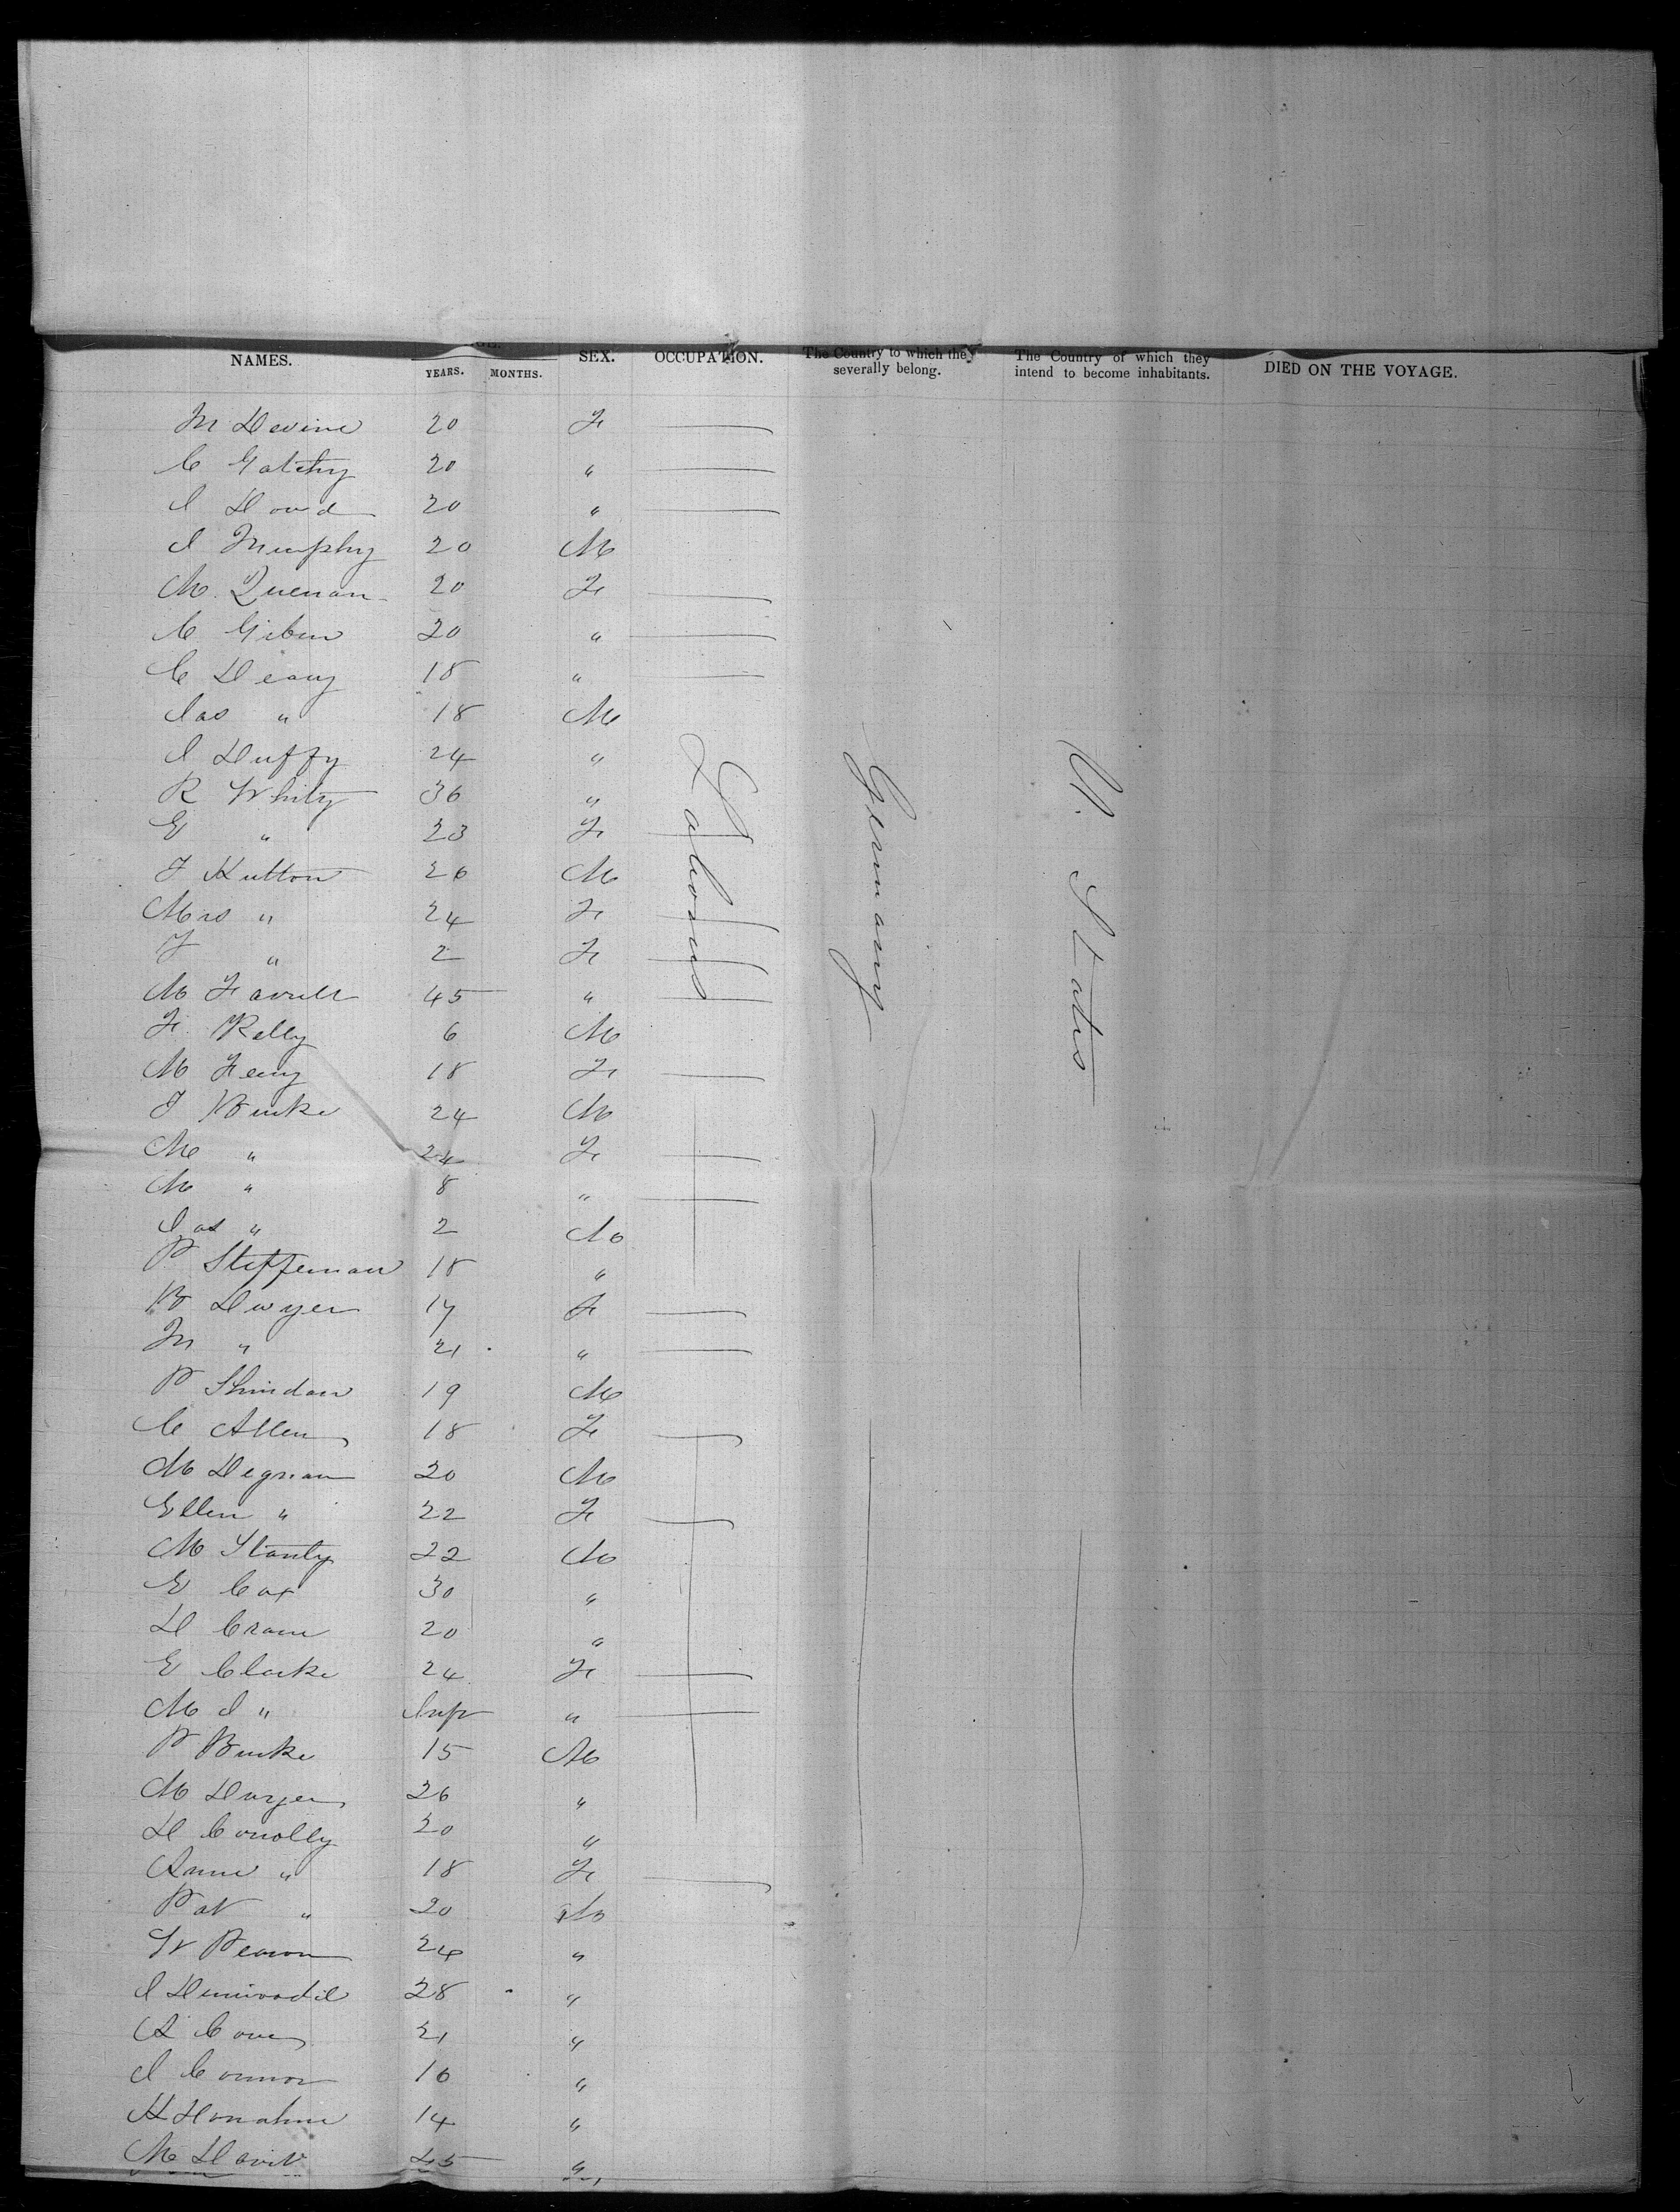 NAMES. YEARS. MONTHS. SEX. OCCUPATION. The Country to which they severally belong. The Country of which they intend to become inhabitants. DIED ON THE VOYAGE.
M Devine 20 F
C 20 "
J Dowd 20 "
J Murphy 20 M
M. 20 F
C 20 "
C 18 "
Jas " 18 M
J Duffy 24 "
R Whity 36 "
E " 23 F
T Hutton 26 M
Mrs " 24 F
T " 2 F
M Farrell 45 "
F. Kelly 6 M
M Feeny 18 F
T Burke 24 M
M " 24 F
M " 8 "
Jas " 2 M
P 18 "
B Dwyer 17 F
M " 21 "
P 19 M
C Allen 18 F
M Degnan 20 M
Ellen " 22 F
M 22 M
E Cox 30 "
D 20 "
E Clarke 24 F
M J " Inft "
P Burke 15 M
M 26 "
D Conolly 20 "
Anne " 18 F
Pat " 20 M
W 24 "
J 28 "
A 21 "
J Connor 16 "
H Donahue 14 "
M Davit 45 "
Labourers
Germany
U. States